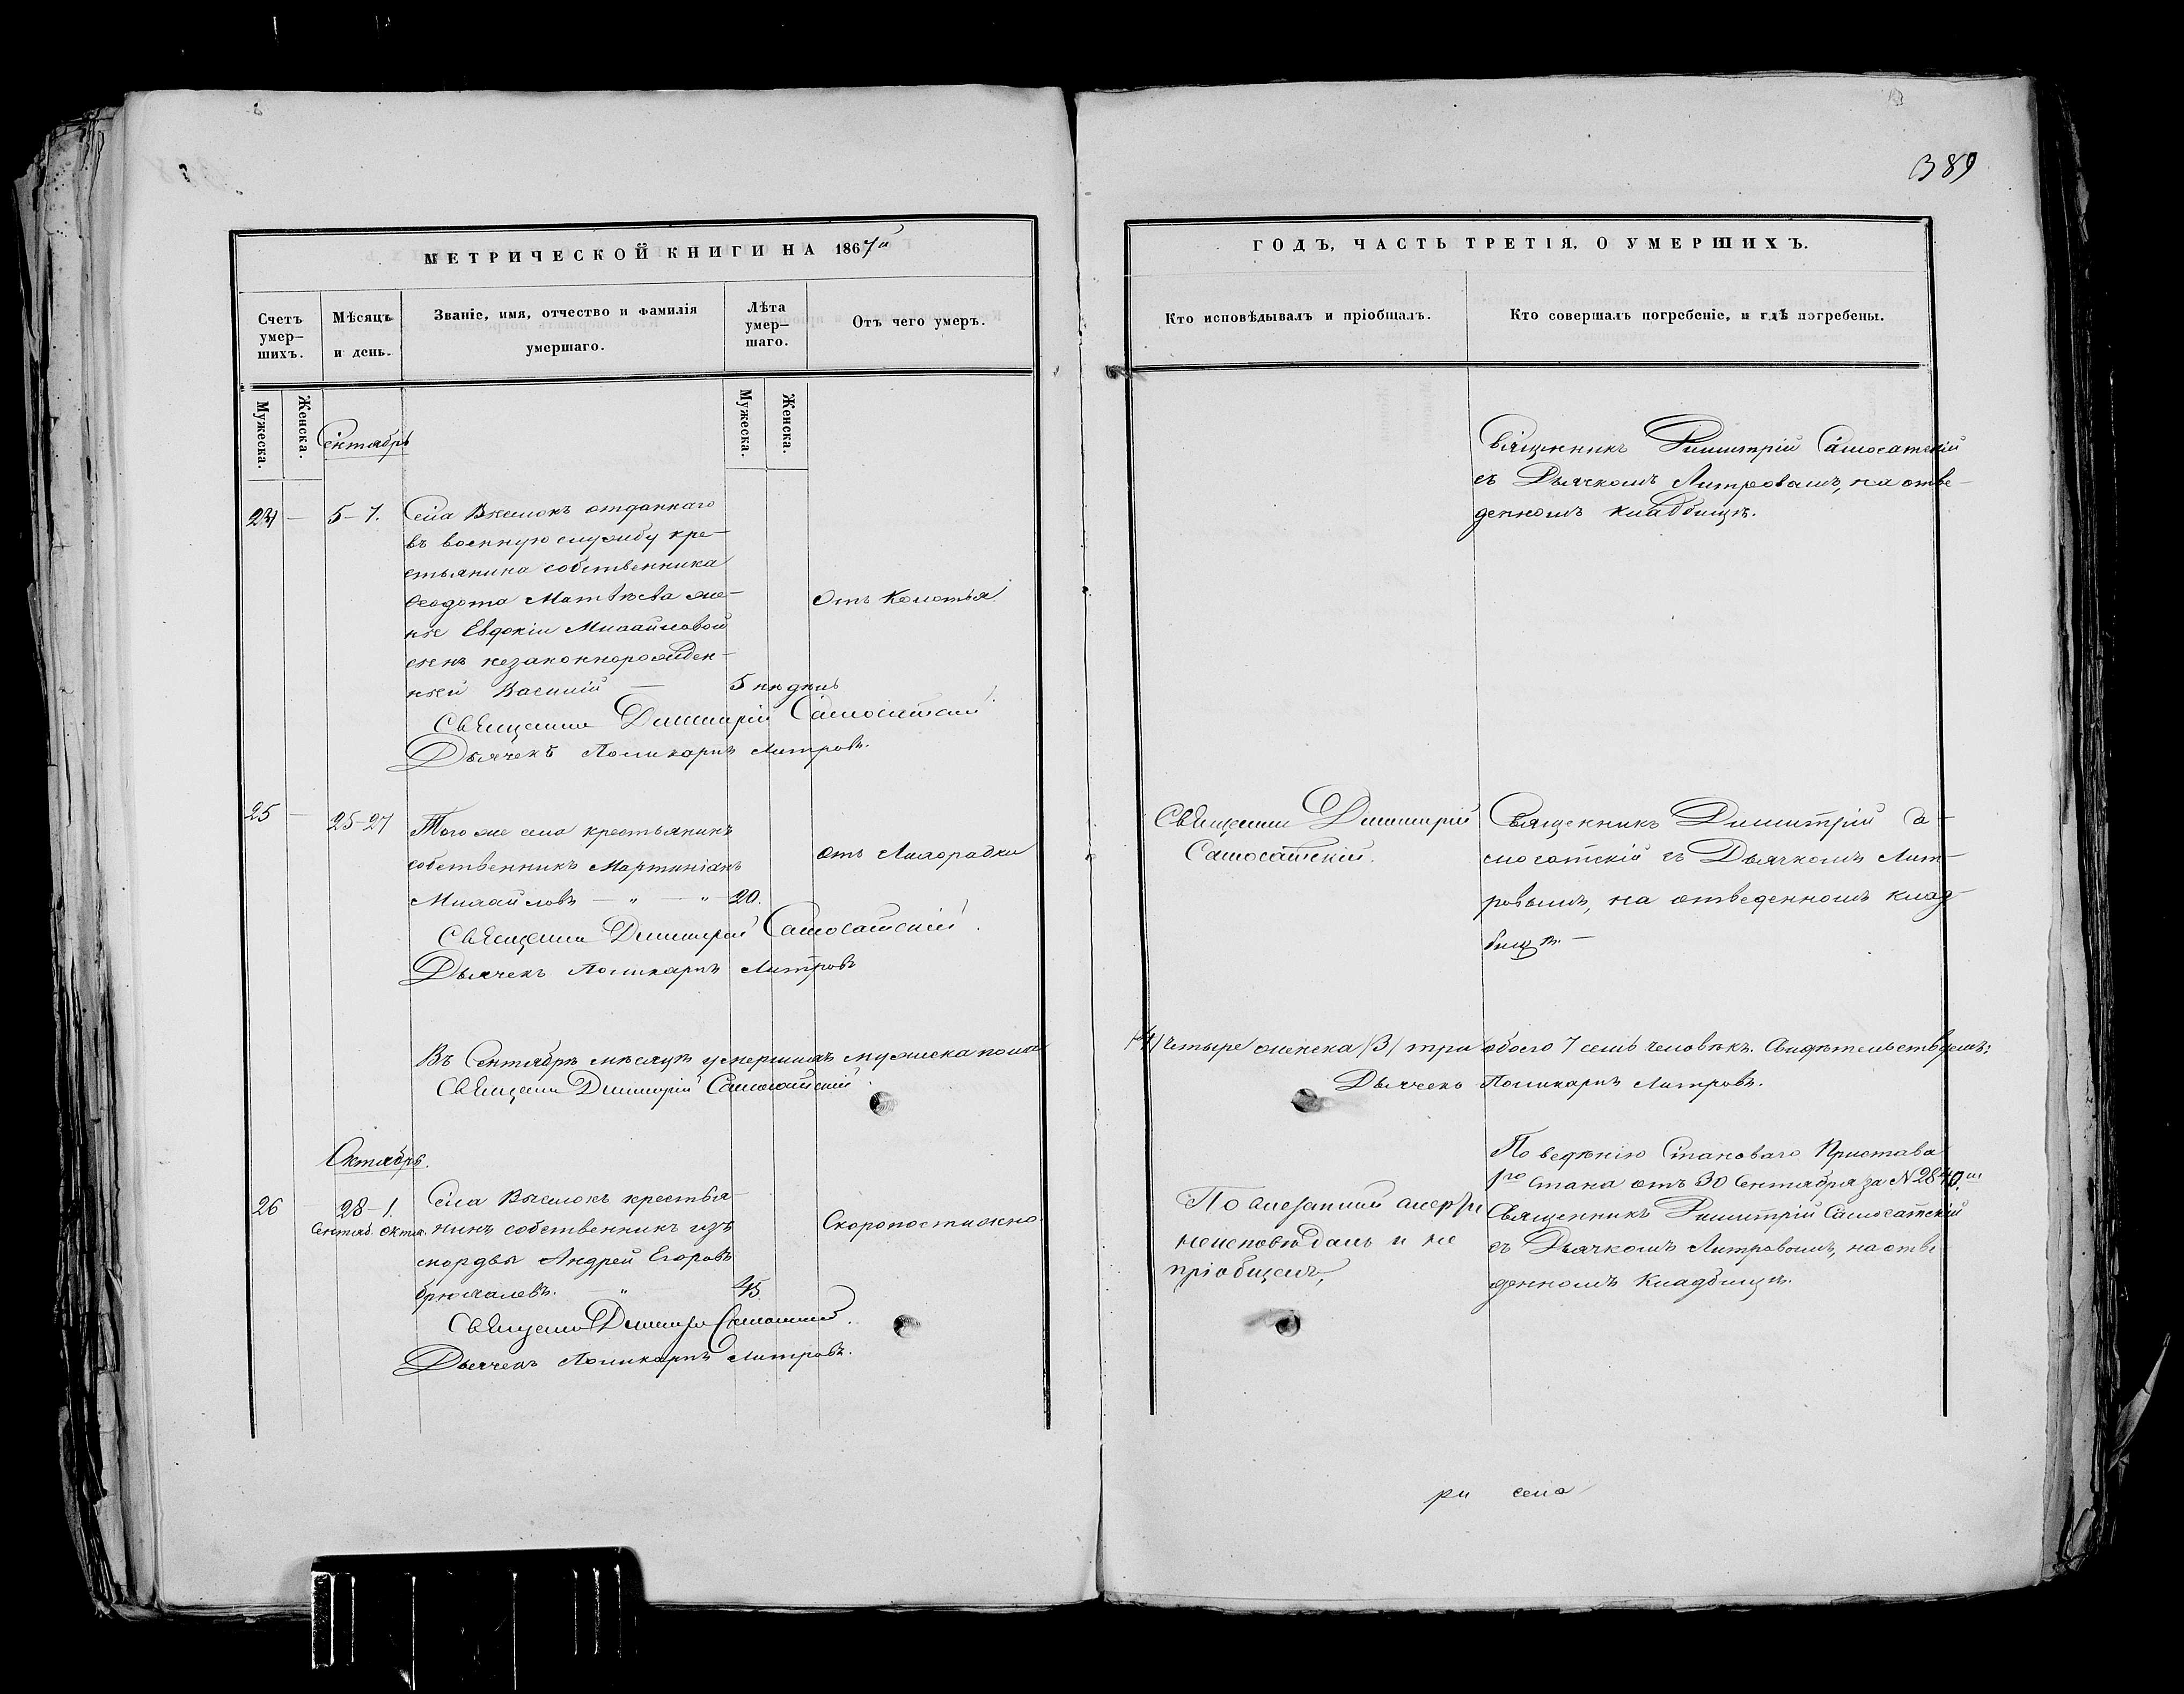 389
МЕТРИЧЕСКОЙ КНИГИ НА 1867й
ГОДЪ, ЧАСТЬ ТРЕТІЯ, О УМЕРШИХЪ.
Счетъ умер-
шихъ.
Мѣсяцъ
и день.
Званіе, имя, отчество и фамилія
умершаго.
Лѣта
умер-
шаго.
Отъ чего умеръ.
Кто исповѣдывалъ и пріобщалъ.
Кто совершалъ погребеніе, и гдѣ погребены.
Мужеска.
Женска.
Мужеска.
Женска.
Сентябрь
24 — 5-7.
Села отданнаго
въ военную службу кре-
стьянина собственника
Ѳеодота Матвѣева же-
ны Евдокіи Михайловой
сынъ незаконнорожден-
ный Василій — 5 недѣль
Отъ Колотья
Священникъ Димитрій Самосатскій
съ Дьячкомъ Литровымъ, на отве-
денномъ кладбищѣ.
Священникъ Димитрій Самосатскій
Дьячекъ Поликарпъ Литровъ.
25 — 25-27
Того же села крестьянинъ
собственникъ Мартиніанъ
Михайловъ — " — " — 20.
отъ Лихорадки
Священникъ Димитрій Самосатскій
Дьячекъ Поликарпъ Литровъ
Священникъ Димитрій
Самосатскій.
Священникъ Димитрій Са-
мосатскій съ Дьячкомъ Лит-
ровымъ, на отведенномъ клад-
бищѣ. —
Въ Сентябрѣ мѣсяцѣ умершихъ мужеска пола
/4/ четыре женска /3/ три обоего 7 семь человѣкъ. Свидѣтельствуемъ:
Священникъ Димитрій Самосатскій
Дьячекъ Поликарпъ Литровъ.
Октябрь.
26 28-1.
Сентяб. Октяб.
Села крестья-
нинъ собственникъ изъ
мордвы Андрей Егоровъ
45
Скоропостижно.
Священникъ Димитрій Самосатскій.
Дьячекъ Поликарпъ Литровъ.
По внезапной смерти
неисповѣданъ и не
пріобщенъ,
По веденію Становаго Пристава
1го стана отъ 30 Сентября за № 2840.м
Священникъ Димитрій Самосатскій
съ Дьячкомъ Литровымъ, на отве-
денномъ Кладбищѣ.
ри села